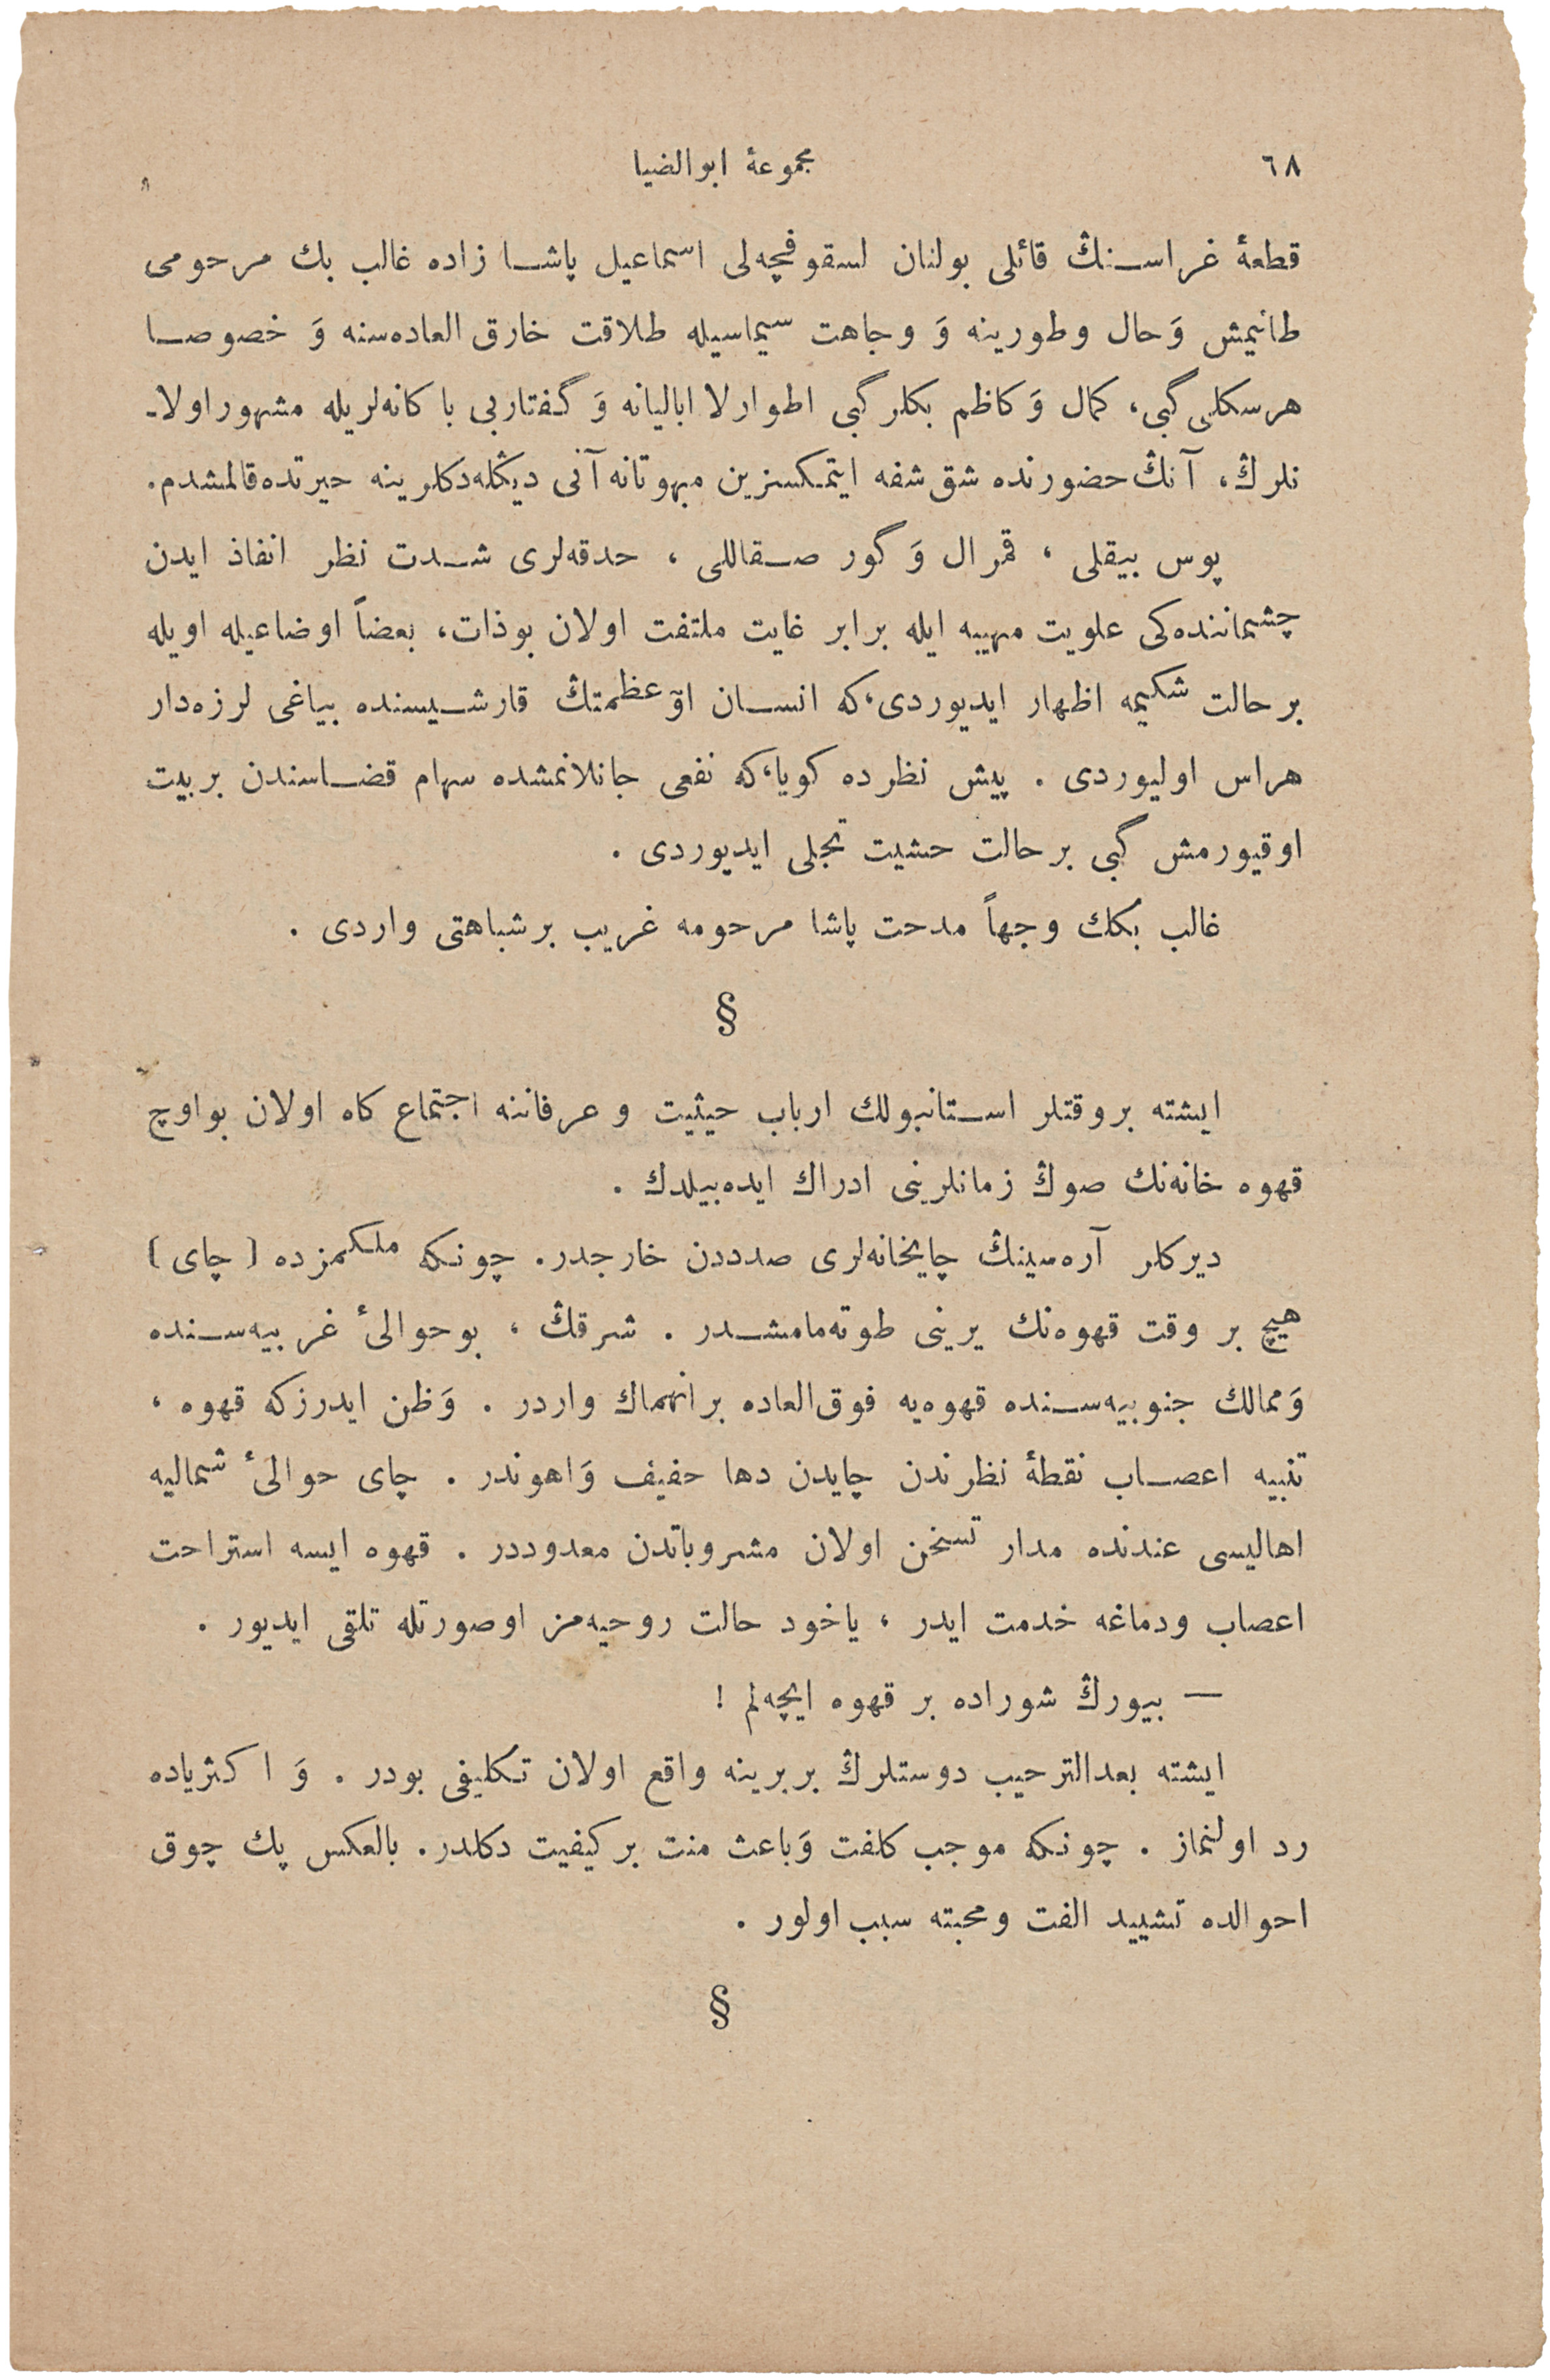 ٦٨
مجموعهٔ ابوالضیا
قطعهٔ غراسـنڭ قائلی بولنان لسقوفچه‌لی اسماعیل پاشا زاده غالب بك مرحومی
طانیمش وَحال وطورینه وَ وجاهت سیماسیله طلاقت خارق العاده‌سنه وَ خصوصا
هرسكلی گبی، كمال وَكاظم بكلر گبی اطوار لا ابالیانه وَ گفتار بی باكانه‌لریله مشهور اولا-
نلرڭ، آنڭ حضورنده شق شفه ایتمكسزین مبهوتانه آنی دیڭله‌دكلرینه حیرتده قالمشدم.
پوس بیقلی ، قمرال وَ گور صقاللی ، حدقه‌لری شدت نظر انفاذ ایدن
چشماننده‌كی علویت مهیبه ایله برابر غایت ملتفت اولان بوذات، بعضاً اوضاعیله اویله
برحالت شكیمه اظهار ایدیوردی،كه انسان اوٓ عظمتڭ قارشیسنده بیاغی لرزه‌دار
هراس اولیوردی . پیش نظرده كویا،كه نفعی جانلانمشده سهام قضاسندن بربیت
اوقیورمش گبی برحالت حشیت تجلی ایدیوردی .
غالب بكك وجهاً مدحت پاشا مرحومه غریب برشباهتی واردی .
§
ایشته بروقتلر استانبولك ارباب حیثیت و عرفاننه اجتماع كاه اولان بواوچ
قهوه خانه‌نك صوڭ زمانلرینی ادراك ایده‌بیلدك .
دیركلر آره‌سینڭ چایخانه‌لری صدددن خارجدر. چونكه ملكمزده (چای)
هیچ بر وقت قهوه‌نك یرینی طوته‌مامشدر . شرقڭ ، بوحوالیٔ غربیه‌سنده
وَممالك جنوبیه‌سنده قهوه‌یه فوق‌العاده برانهماك واردر . وَظن ایدرزكه قهوه ،
تنبیه اعصاب نقطهٔ نظرندن چایدن دها حفیف وَاهوندر . چای حوالیٔ شمالیه
اهالیسی عندنده مدار تسخن اولان مشروباتدن معدوددر . قهوه ایسه استراحت
اعصاب ودماغه خدمت ایدر ، یاخود حالت روحیه‌مز اوصورتله تلقی ایدیور .
— بیورڭ شوراده بر قهوه ایچه‌لم !
ایشته بعدالترحیب دوستلرڭ بربرینه واقع اولان تكلیفی بودر . وَ اكثریاده
رد اولنماز . چونكه موجب كلفت وَباعث منت بركیفیت دكلدر. بالعكس پك چوق
احوالده تشیید الفت ومحبته سبب اولور .
§